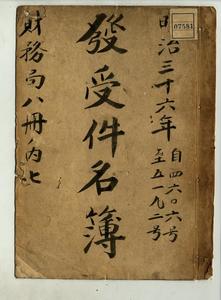 07581
明治三十六年
自四六〇六号
至五一九二号
發受件名簿
財務局八冊ノ内七